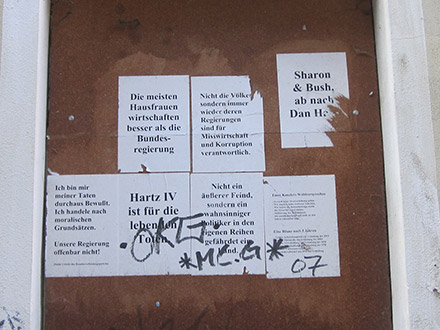 Die meisten
Hausfrauen
wirtschaften
besser als die
Bundes-
regierung
Nicht die Völker
sondern immer
wieder deren
Regierungen
sind für
Misswirtschaft
und Korruption
verantwortlich.
Sharon
& Bush,
ab nach
Dan Ha
Ich bin mir
meiner Taten
durchaus Bewußt.
Ich handele nach
moralischen
Grundsätzen.
Unsere Regierung
offenbar nicht!
Hartz IV
ist für die
lebenden
Toten
Nicht ein
äußerer Feind,
sondern ein
wahnsinniger
Politiker in den
eigenen Reihen
gefährdet ein
and.
*MC.G*
07